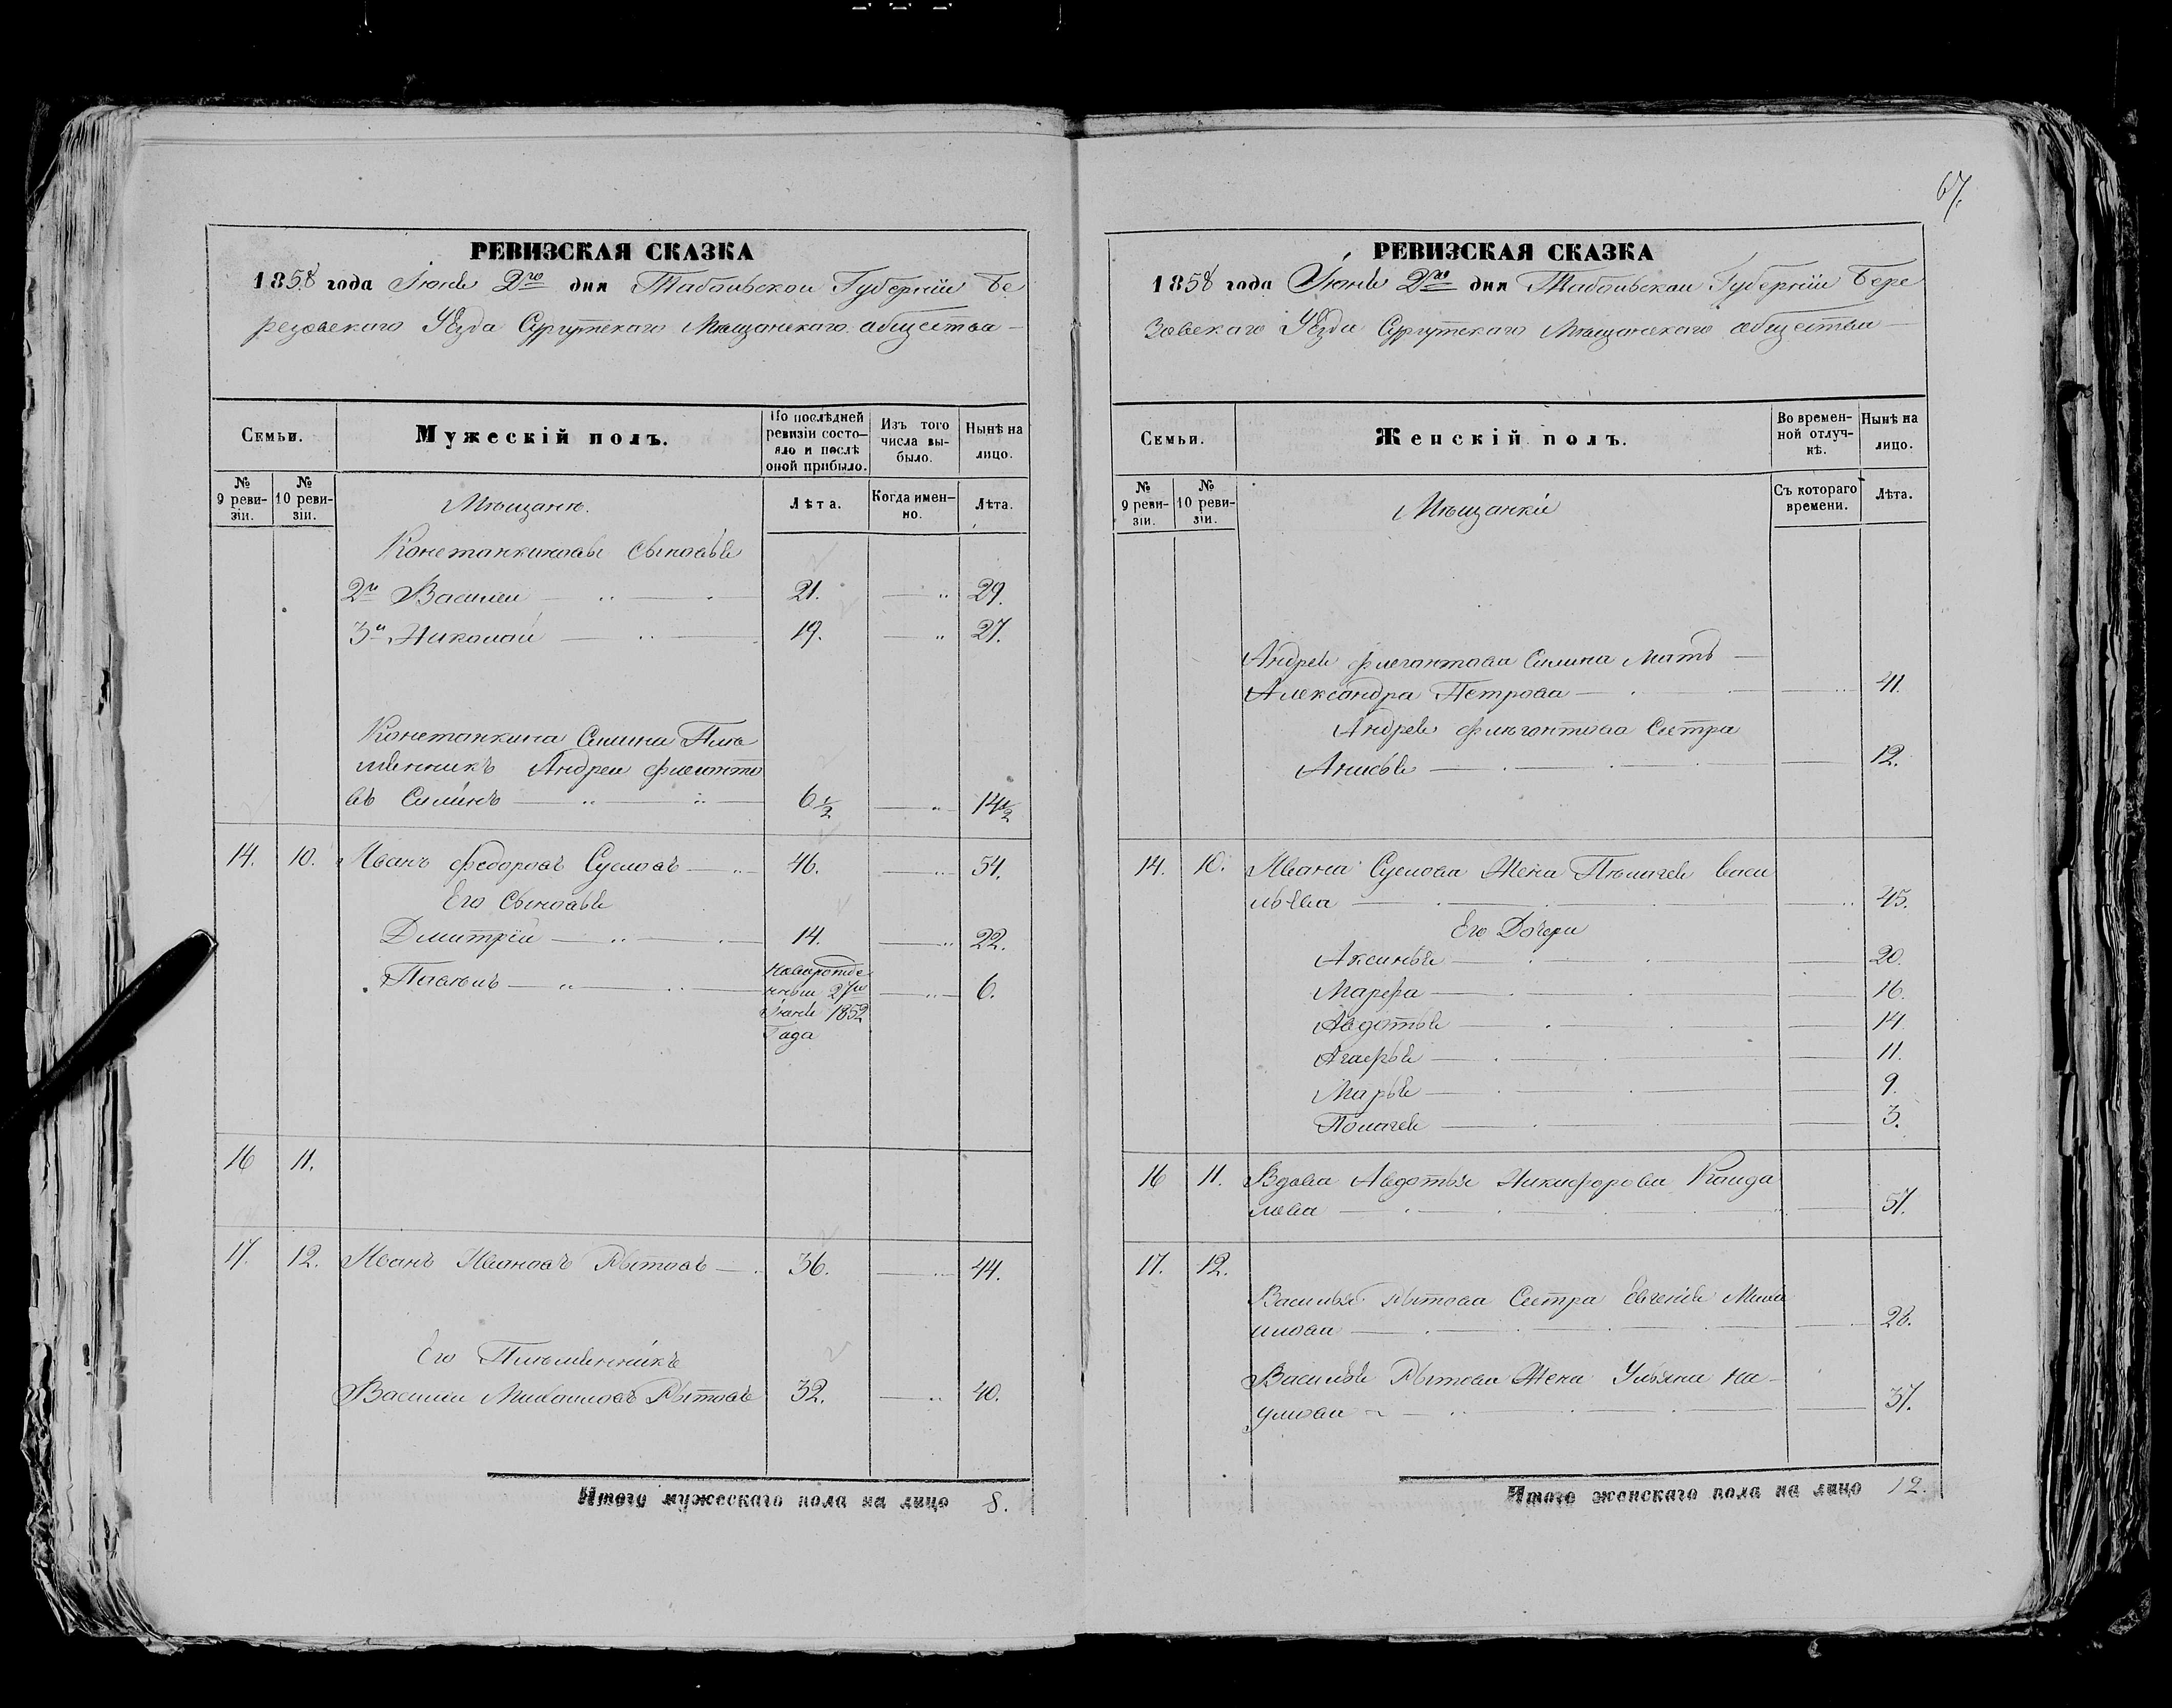 РЕВИЗСКАЯ СКАЗКА
1858 года Іюня 2го дня Табольской Губерніи Бе
резовскаго Уѣзда Сургутскаго Мѣщанскаго общества
Семьи.
Мужескій полъ.
По послѣдней ревизіи состо-
яло и послѣ оной прибыло.
Изъ того числа вы-
было.
Нынѣ на лицо.
№ 9 реви-
зіи.
№ 10 реви-
зіи.
Мѣщане.
Лѣта.
Когда имен-
но.
Лѣта.
Констанкиновы сыновья
2й Василей 21. 29.
3й Николай 19. 27.
Констанкина Силина Пле
менникъ Андрей Флегонто
въ Силинъ 6½ 14½
14. 10. Иванъ Федоровъ Сусловъ 46. 54.
Его Сыновья
Дмитрій 14. 22.
Павелъ Новорожде 6.
нный 27го
Іюня 1852
Года
16 11.
17. 12. Иванъ Ивановъ Рытовъ 36. 44.
Его Племянникъ
Василей Михайловъ Рытовъ 32. 40.
Итого мужескаго пола на лицо 8.
67.
РЕВИЗСКАЯ СКАЗКА
1858 года Іюня 2го дня Табольской Губерніи Бере
зовскаго Уѣзда Сургутскаго Мѣщанскаго общества
Семьи.
Женскій полъ.
Во времен-
ной отлуч-
кѣ.
Нынѣ на лицо.
№ 9 реви-
зіи.
№ 10 реви-
зіи.
Мѣщанки
Съ котораго времени.
Лѣта.
Андрея Флегонтова Силина Мать
Александра Петрова 41.
Андрея Флегонтова Сестра
Анисья 12.
14. 10. Ивана Суслова Жена Пелагея Васи
льева 45.
Его Дочери
Аксинья 20.
Марфа 16.
Авдотья 14.
Агафья 11.
Марья 9.
Полагея 3.
16 11. Вдова Авдотья Никифорова Кайда
лова 57.
17. 12.
Василья Рытова Сестра Евгенія Миха
илова 28.
Василья Рытова Жена Ульяна На-
умова 37.
Итого женскаго пола на лицо 12.